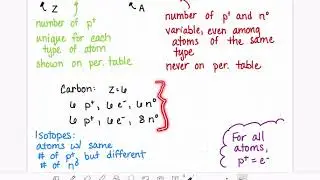 Z
A
number of p⁺
unique for each
type of atom
shown on per. table
number of p⁺ and n°
variable, even among
atoms of the same
type
never on per. table
Carbon: Z=6
6 p⁺, 6 e⁻, 6 n°
6 p⁺, 6 e⁻, 8 n°
Isotopes:
atoms w/ same
# of p⁺, but different
# of n°
For all
atoms,
p⁺ = e⁻